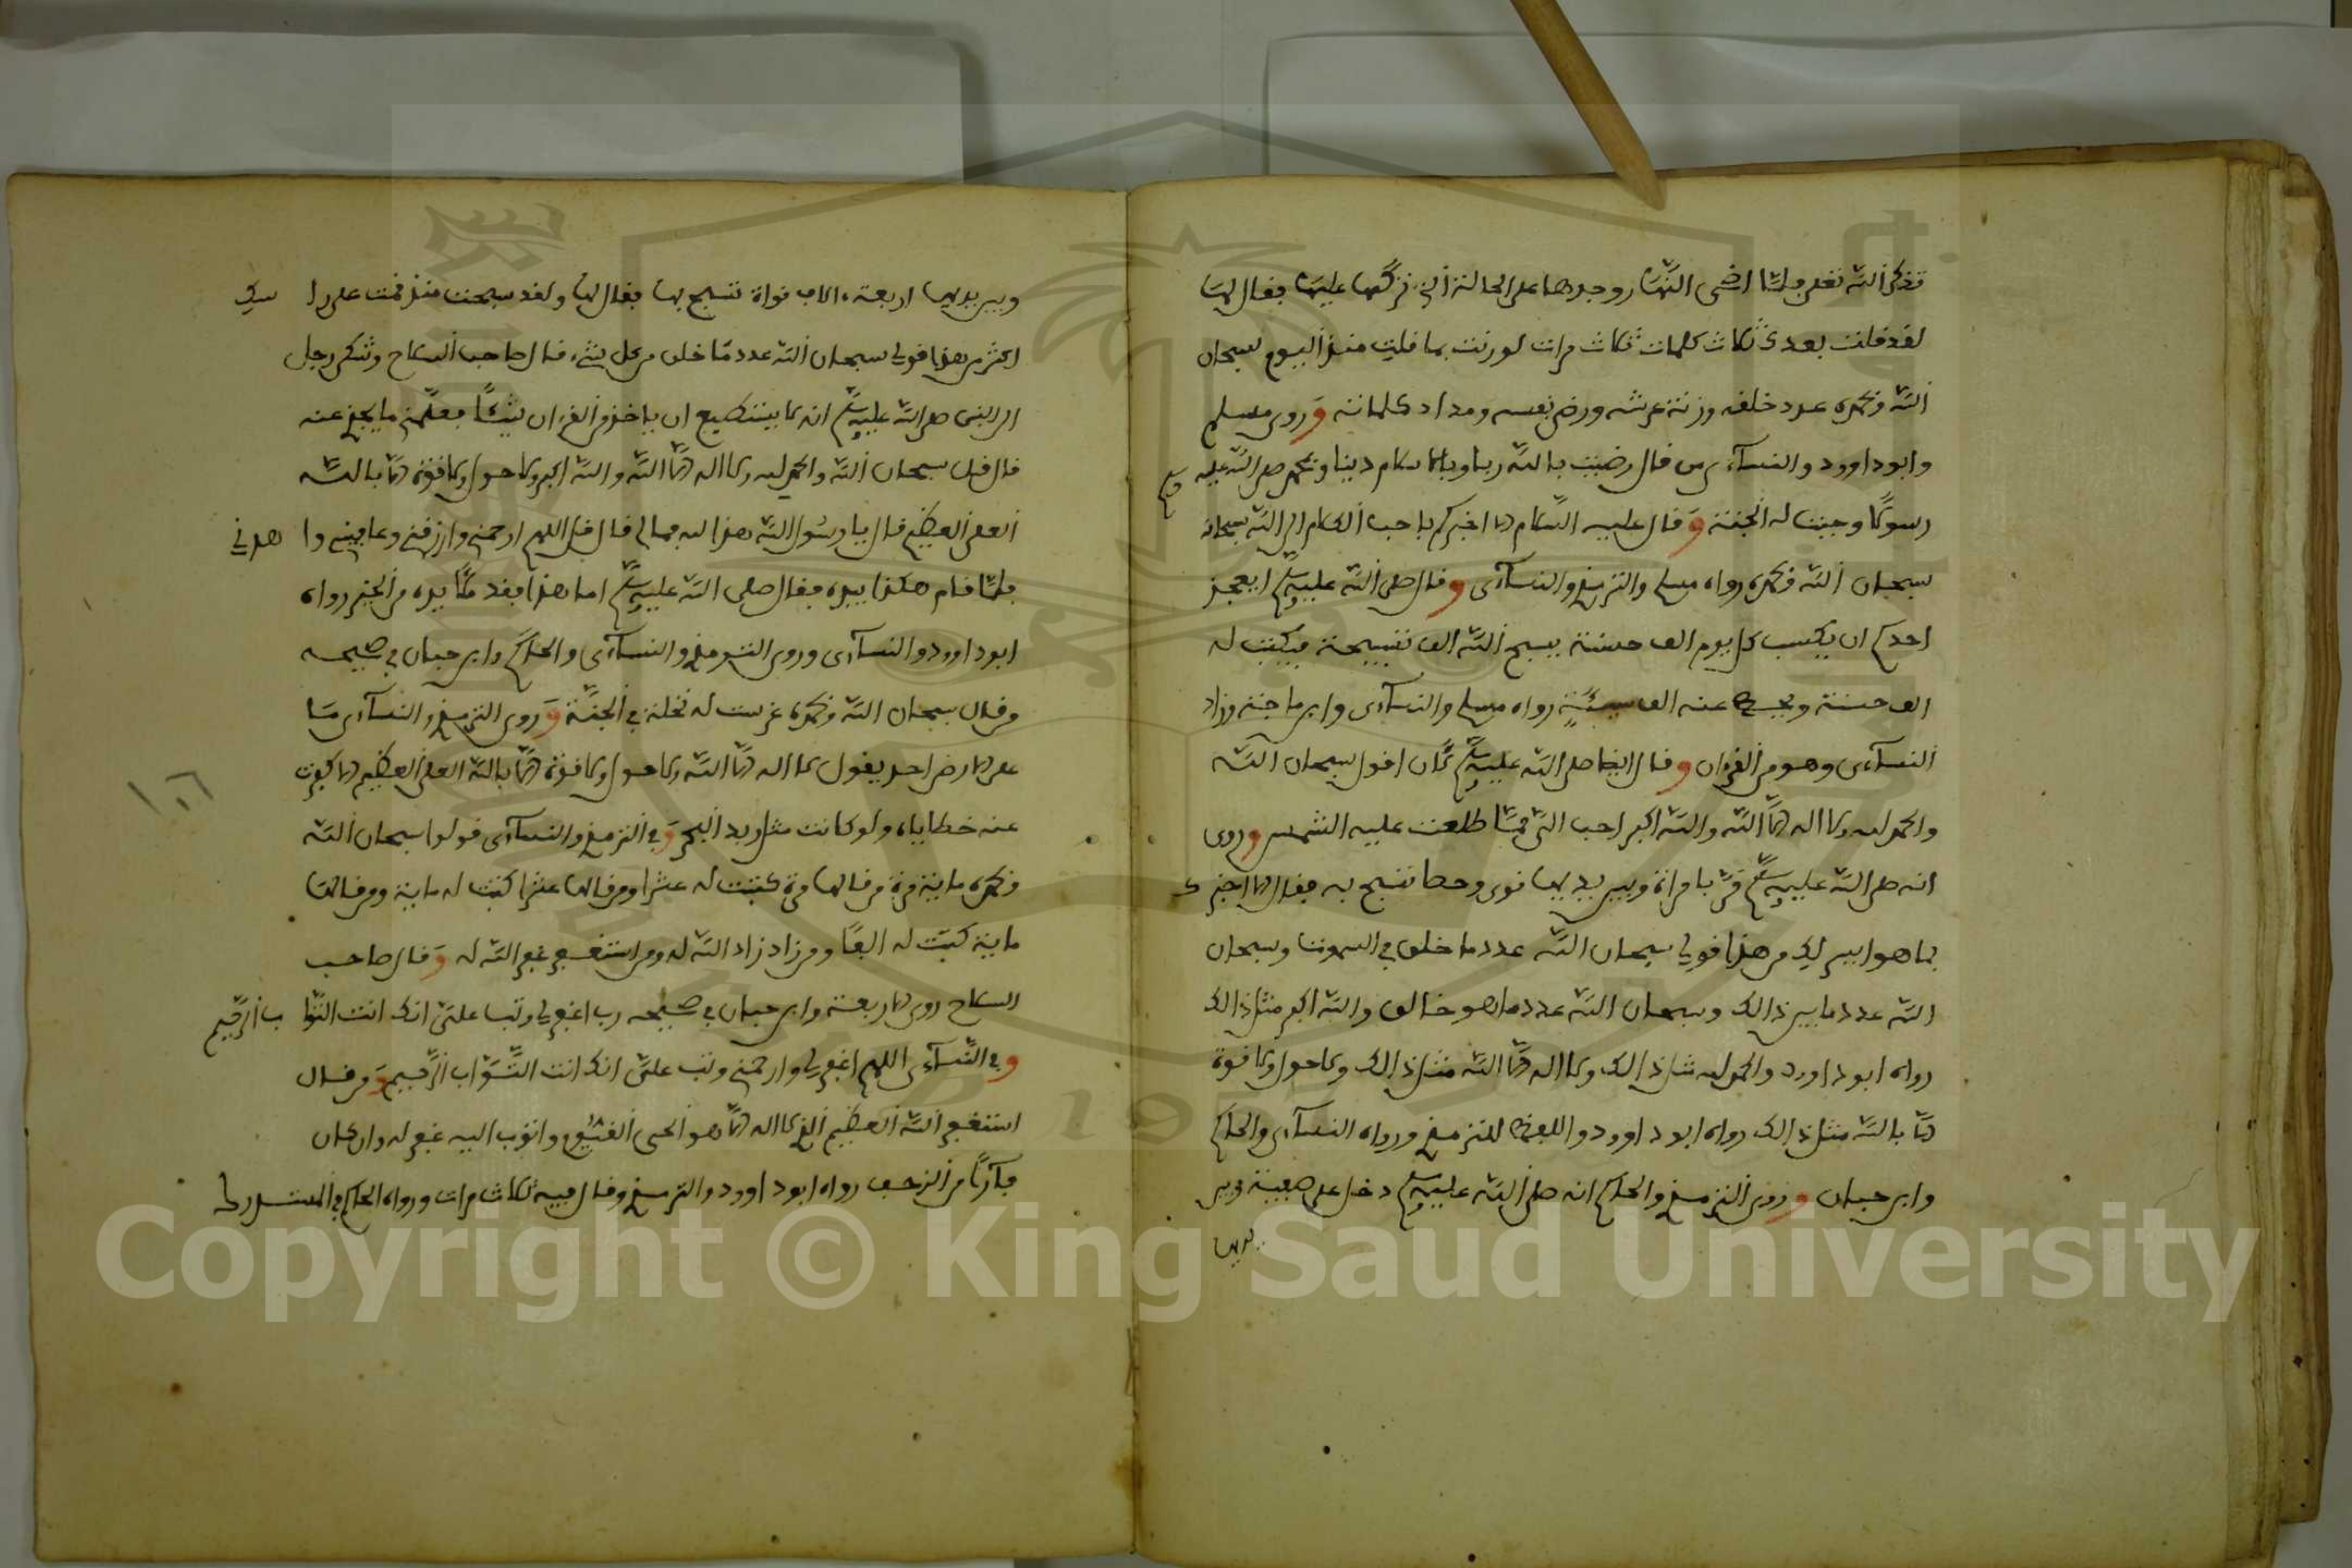 تذكر الله تعلى فلما اضحى النهار وجدها على الحالة التي تركها عليها فقال لها
لقد قلت بعدك ثلاث كلمات ثلاث مرات لو زنت بما قلت منذ اليوم سبحان
الله وبحمده عدد خلقه وزنة عرشه ورضى نفسه ومداد كلماته وروى مسلم
وابو داوود والنساءى من قال رضيت بالله ربا وبالاسلام دينا وبمحمد صلى الله عليه وسلم
رسولا وجبت له الجنة وقال عليه السلام الا اخبركم باحب الكلام الى الله سبحانه
سبحان الله وبحمده رواه مسلم والترمذي والنساءى وقال صلى الله عليه وسلم ايعجز
احدكم ان يكسب كل يوم الف حسنة يسبح الله الف تسبيحة فيكتب له
الف حسنة ويحط عنه الف سيئة رواه مسلم والنساءى وابن ماجة وزاد
النساءى وهو من القرءان وقال ايضا صلى الله عليه وسلم لأن اقول سبحان الله
والحمد لله ولا اله الا الله والله اكبر احب الى مما طلعت عليه الشمس وروى
انه صلى الله عليه وسلم مر بامراة وبين يديها نوى وحصا تسبح به فقال الا اخبرك
بما هو ايسر ليك من هذا قولي سبحان الله عدد ما خلق في السموت وسبحان
الله عدد ما بين ذالك وسبحان الله عدد ما هو خالق والله اكبر مثل ذالك
رواه ابو داوود والحمد لله مثل ذالك ولا اله الا الله مثل ذالك ولا حول ولا قوة
الا بالله مثل ذالك رواه ابو داوود واللفظ للترمذي ورواه النساءى والحاكم
وابن حبان وروى الترمذي والحاكم انه صلى الله عليه وسلم دخل على صفية وبين
يديها
وبين يديها اربعة ءالاف نواة تسبح بها فقال لها ولقد سبحت منذ قمت على راسك
اكثر من هذا قولي سبحان الله عدد ما خلق من كل شيء قال صاحب السلاح وشكى رجل
الى النبي صلى الله عليه وسلم انه لا يستطيع ان ياخذ من القرءان شيئا فعلمني ما يجزي عنه
قال قل سبحان الله والحمد لله ولا اله الا الله والله اكبر ولا حول ولا قوة الا بالله
العلي العظيم قال يا رسول الله هذا لله فما لي قال قل اللهم ارحمني وارزقني وعافيني واهدني
فلما قام هكذا بيده فقال صلى الله عليه وسلم اما هذا فقد ملأ يده من الخير رواه
ابو داوود والنساءى وروى الترمذي والنساءى والحاكم وابن حبان في صحيحه
من قال سبحان الله وبحمده غرست له نخلة في الجنة وروى الترمذي والنساءى ما
على الارض احد يقول لا اله الا الله ولا حول ولا قوة الا بالله العلي العظيم الا كفرت
عنه خطاياه ولو كانت مثل زبد البحر وفي الترمذي والنساءى قولوا سبحان الله
وبحمده ماية مرة من قالها مرة كتبت له عشرا ومن قالها عشرا كتبت له ماية ومن قالها
ماية كتبت له الفا ومن زاد زاد الله له ومن استغفر غفر الله له وقال صاحب
السلاح روى الاربعة وابن حبان في صحيحه رب اغفر لي وتب علي انك انت التواب الرحيم
وفي النساءى اللهم اغفر لي وارحمني وتب علي انك انت التواب الرحيم ومن قال
استغفر الله العظيم الذي لا اله الا هو الحي القيوم واتوب اليه غفر له وان كان
فارا من الزحف رواه ابو داوود والترمذي وقال فيه ثلاث مرات ورواه الحاكم في المستدرك
Copyright © King Saud University